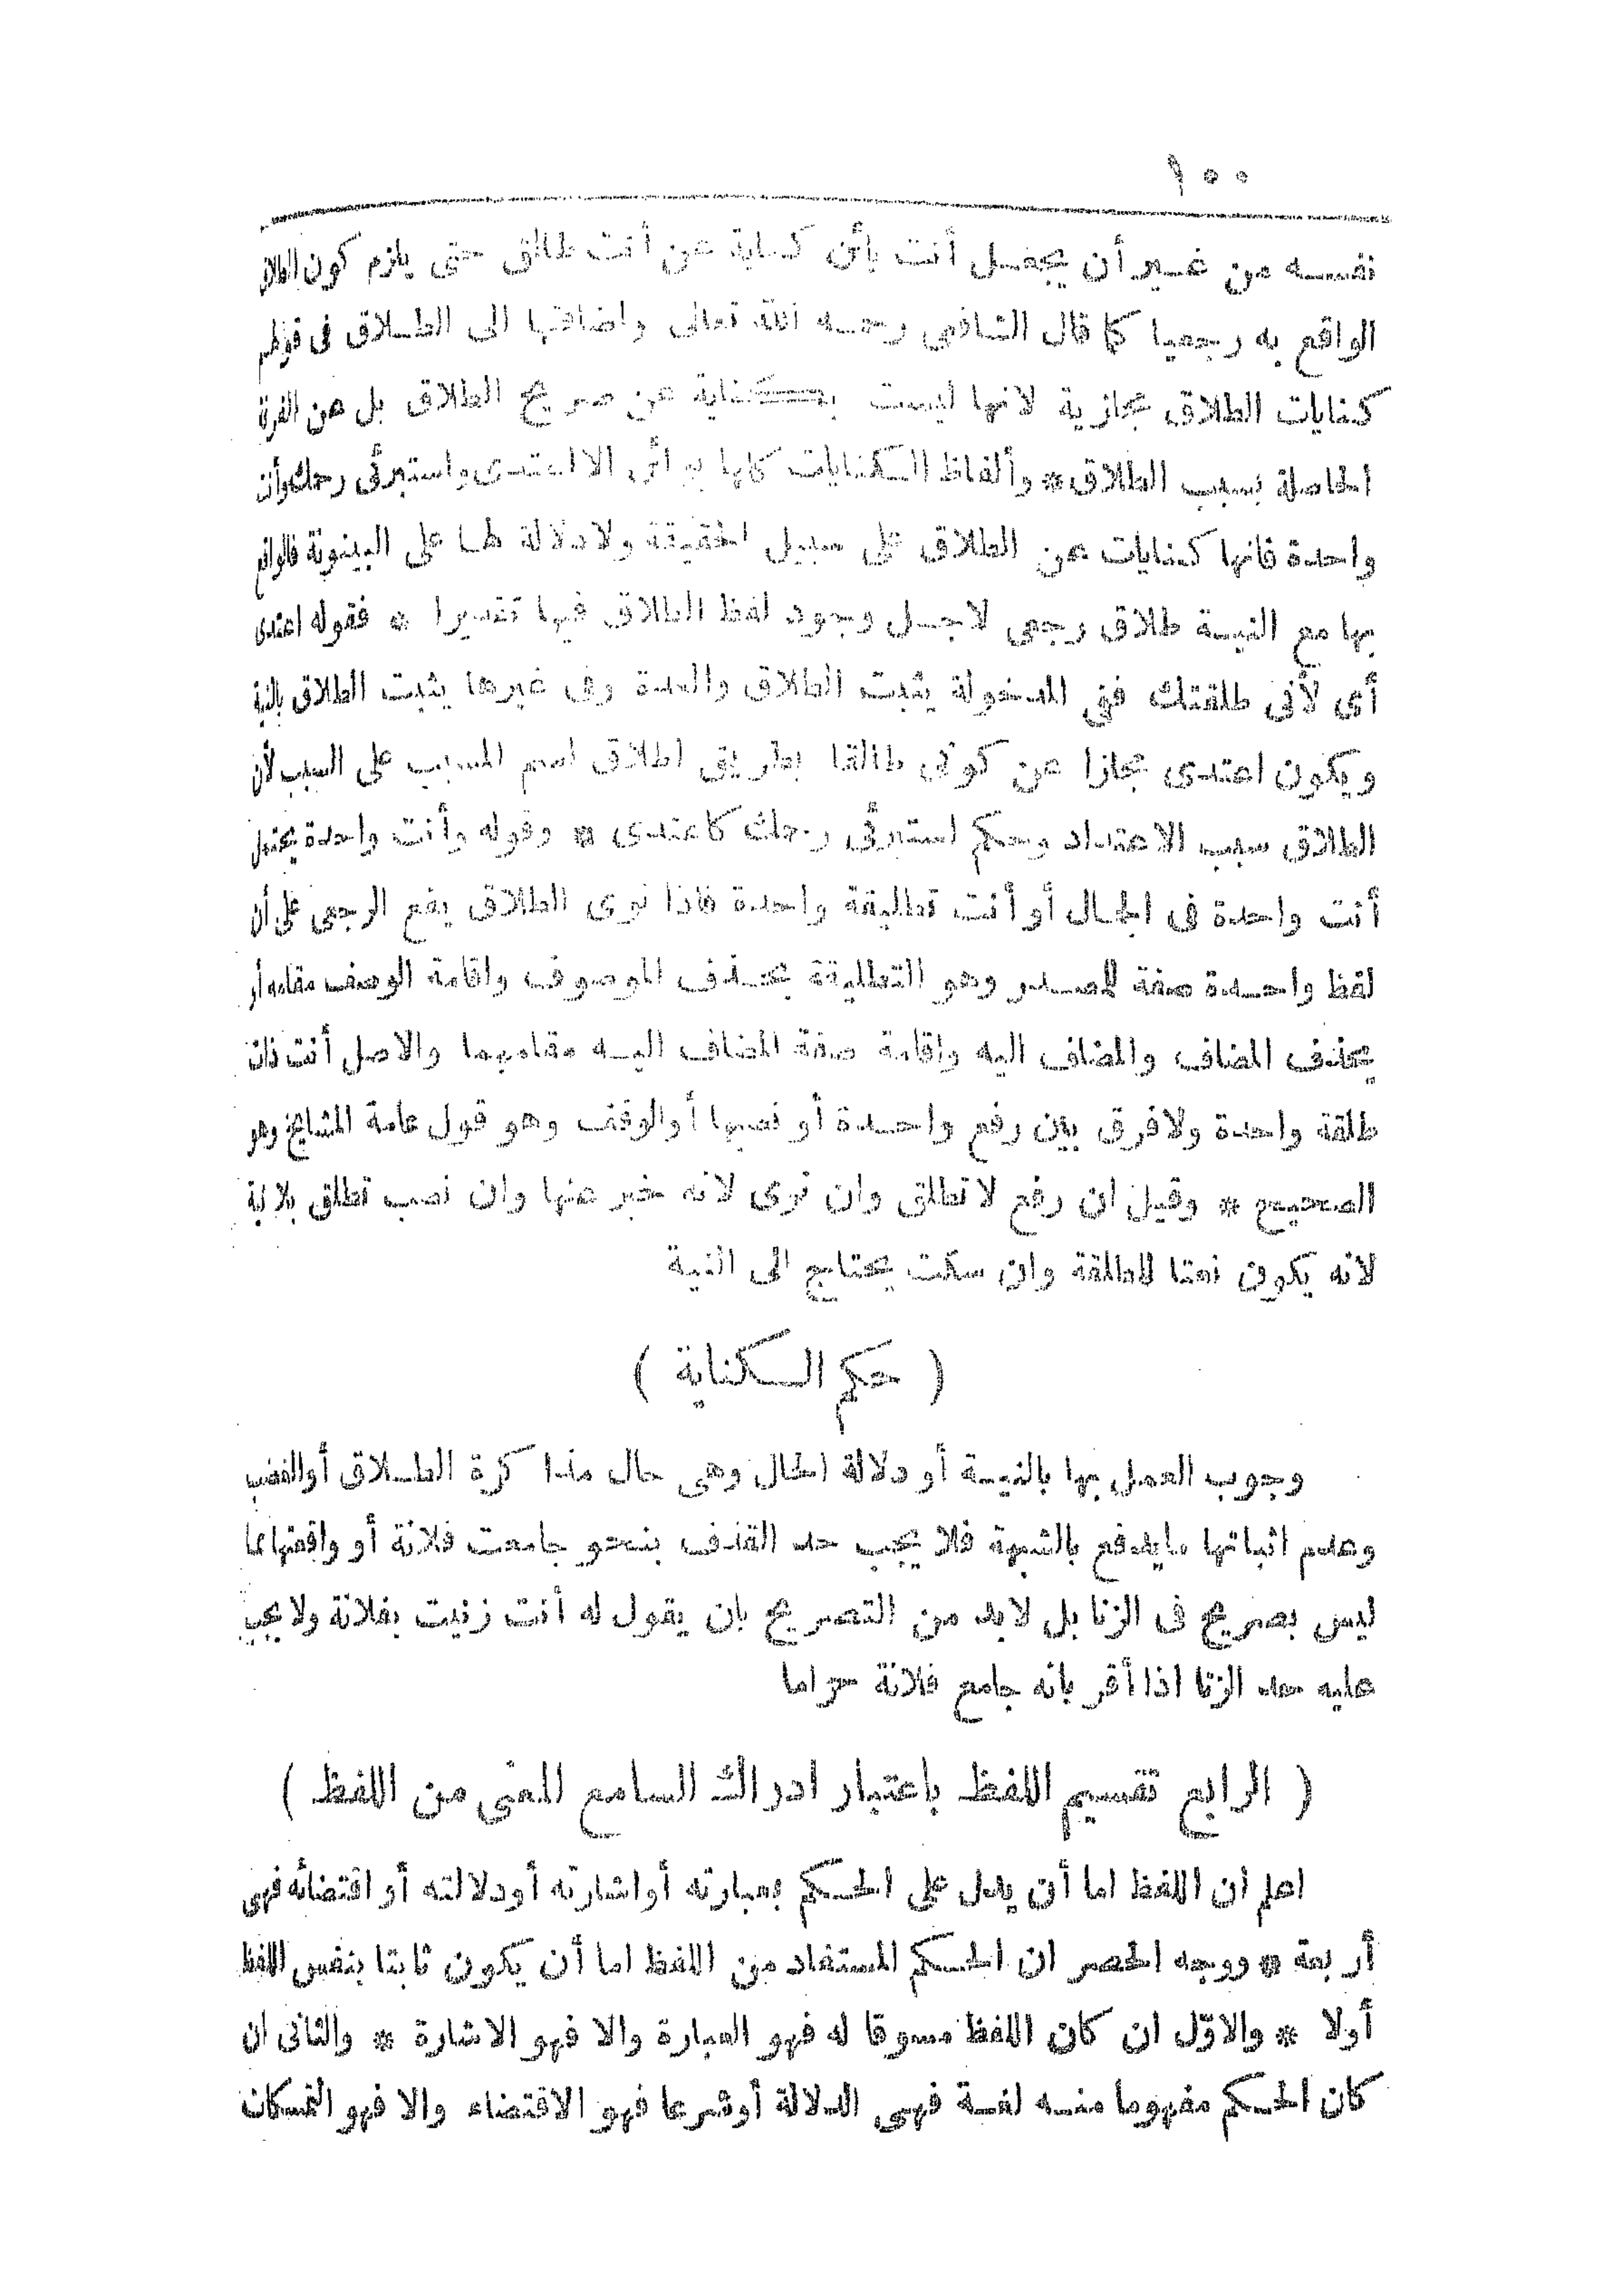 ١٠٠
نفسه من غير أن يجعل أنت بائن كناية عن أنت طالق حتى يلزم كون الطلاق
الواقع به رجعيا كما قال الشافعى رحمه الله تعالى واضافتها الى الطلاق فى قولهم
كنايات الطلاق مجازية لانها ليست بكناية عن صريح الطلاق بل عن الفرقة
الحاصلة بسبب الطلاق * وألفاظ الكنايات كلها بوائن الا اعتدى واستبرئى رحمك وأنت
واحدة فانها كنايات عن الطلاق على سبيل الحقيقة ولا دلالة لها على البينونة فالواقع
بها مع النية طلاق رجعى لاجل وجود لفظ الطلاق فيها تقديرا * فقوله اعتدى
أى لأنى طلقتك ففى المدخولة يثبت الطلاق والعدة وفى غيرها يثبت الطلاق بالنية
ويكون اعتدى مجازا عن كونى طالقا بطريق اطلاق اسم المسبب على السبب لأن
الطلاق سبب الاعتداد وحكم استبرئى رحمك كاعتدى * وقوله وأنت واحدة يحتمل
أنت واحدة فى الجمال أو أنت تطليقة واحدة فاذا نوى الطلاق يقع الرجعى على أن
لفظ واحدة صفة للمصدر وهو التطليقة بحذف الموصوف واقامة الوصف مقامه أو
بحذف المضاف والمضاف اليه واقامة صفة المضاف اليه مقامهما والاصل أنت ذات
طلقة واحدة ولا فرق بين رفع واحدة أو نصبها أو الوقف وهو قول عامة المشايخ وهو
الصحيح * وقيل ان رفع لا تطلق وان نوى لانه خبر عنها وان نصب تطلق بلا نية
لانه يكون نعتا للطلقة وان سكت يحتاج الى النية
( حكم الكناية )
وجوب العمل بها بالنية أو دلالة الحال وهى حال مذاكرة الطلاق أو الغضب
وعدم اثباتها ما يدفع بالشبهة فلا يجب حد القذف بنحو جامعت فلانة أو واقعتها مما
ليس بصريح فى الزنا بل لا بد من التصريح بان يقول له أنت زنيت بفلانة ولا يجب
عليه حد الزنا اذا أقر بانه جامع فلانة حراما
( الرابع تقسيم اللفظ باعتبار ادراك السامع المعنى من اللفظ )
اعلم ان اللفظ اما أن يدل على الحكم بعبارته أو اشارته أو دلالته أو اقتضائه فهى
أربعة * ووجه الحصر ان الحكم المستفاد من اللفظ اما أن يكون ثابتا بنفس اللفظ
أولا * والاوّل ان كان اللفظ مسوقا له فهو العبارة والا فهو الاشارة * والثانى ان
كان الحكم مفهوما منه لغة فهى الدلالة أو شرعا فهو الاقتضاء والا فهو التمسكات